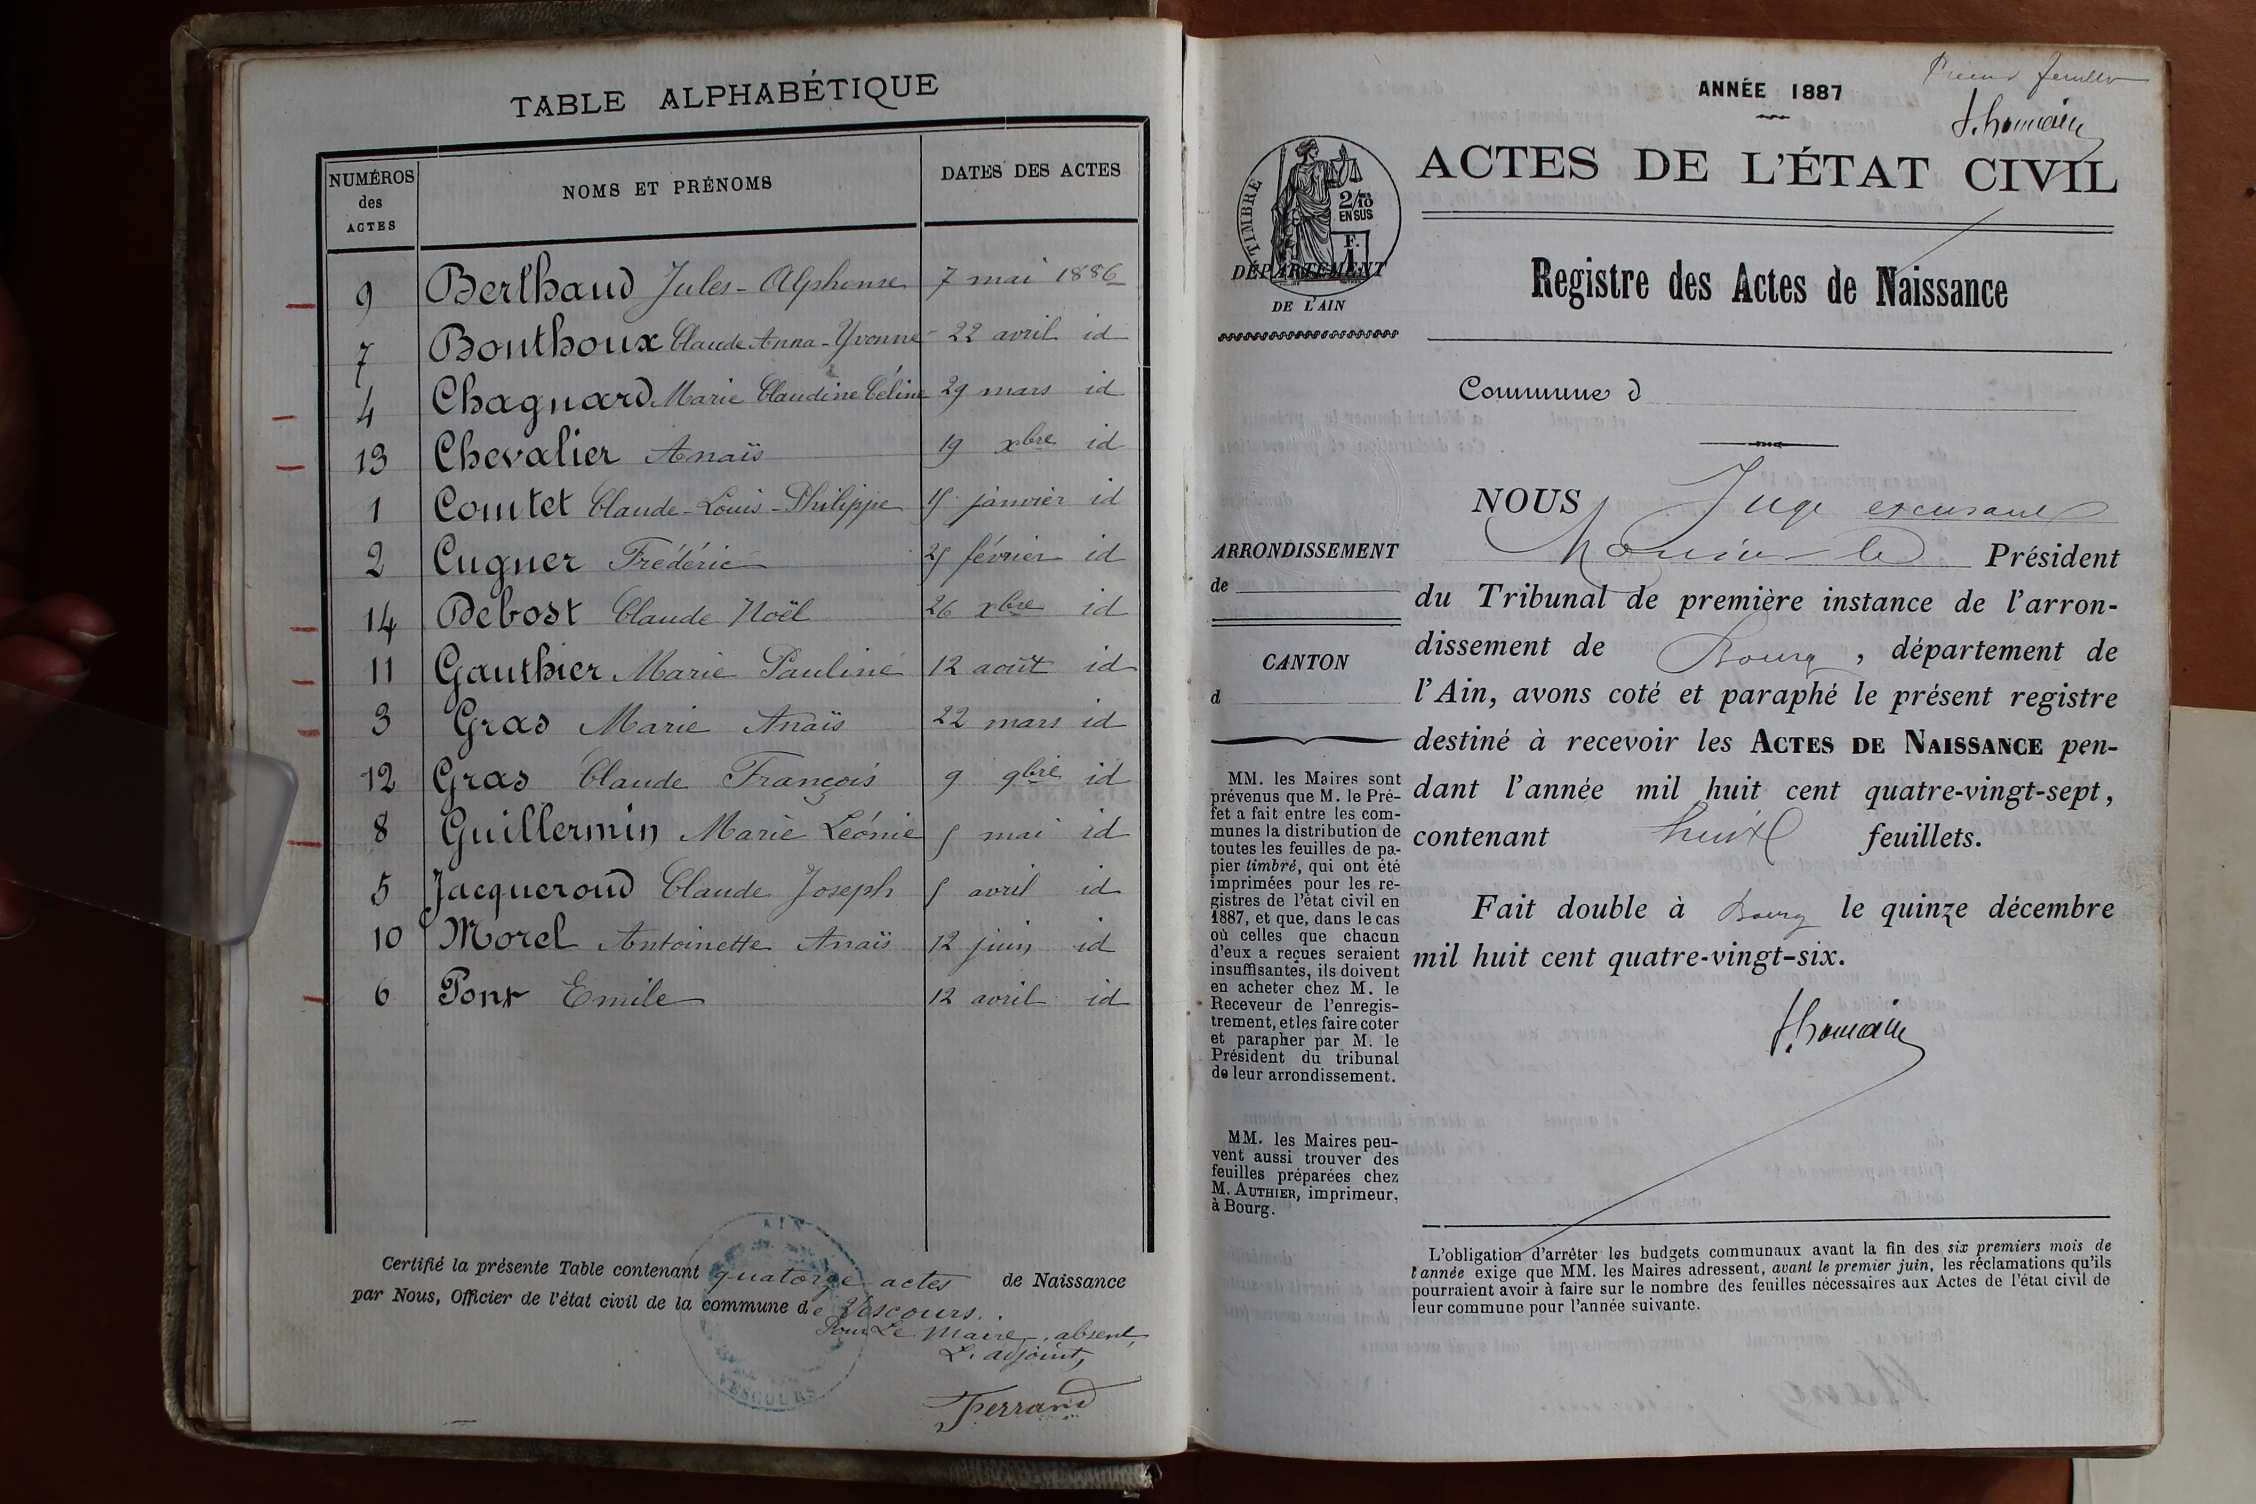 TABLE ALPHABÉTIQUE
NUMÉROS des ACTES
NOMS ET PRÉNOMS
DATES DES ACTES
9 Berthaud Jules-Alphonse 7 mai 1886
7 Bonthoux Claude Anna-Yvonne 22 avril id
4 Chagnard Marie Claudine Céline 29 mars id
13 Chevalier Anaïs 19 xbre id
1 Comtet Claude-Louis-Philippe 15 janvier id
2 Cugner Frédéric 25 février id
14 Debost Claude Noël 26 xbre id
11 Gauthier Marie Pauline 12 août id
3 Gras Marie Anaïs 22 mars id
12 Gras Claude François 9 9bre id
8 Guillermin Marie Léonie 5 mai id
5 Jacqueroud Claude Joseph 5 avril id
10 Morel Antoinette Anaïs 12 juin id
6 Pont Emile 12 avril id
Certifié la présente Table contenant quatorze actes de Naissance
par Nous, Officier de l'état civil de la commune de Vescours.
Pour Le Maire absent,
L'adjoint,
Ferrand
AIN
VESCOURS
ANNÉE 1887
ACTES DE L'ÉTAT CIVIL
TIMBRE
2/10
EN SUS
F.
1
DÉPARTEMENT
DE L'AIN
Registre des Actes de Naissance
Commune d
ARRONDISSEMENT
de
CANTON
d
MM. les Maires sont
prévenus que M. le Pré-
fet a fait entre les com-
munes la distribution de
toutes les feuilles de pa-
pier timbré, qui ont été
imprimées pour les re-
gistres de l'état civil en
1887, et que, dans le cas
où celles que chacun
d'eux a reçues seraient
insuffisantes, ils doivent
en acheter chez M. le
Receveur de l'enregis-
trement, et les faire coter
et parapher par M. le
Président du tribunal
de leur arrondissement.
MM. les Maires peu-
vent aussi trouver des
feuilles préparées chez
M. AUTHIER, imprimeur,
à Bourg.
NOUS Juge
le Président
du Tribunal de première instance de l'arron-
dissement de Bourg, département de
l'Ain, avons coté et paraphé le présent registre
destiné à recevoir les ACTES DE NAISSANCE pen-
dant l'année mil huit cent quatre-vingt-sept,
contenant huit feuillets.
Fait double à Bourg le quinze décembre
mil huit cent quatre-vingt-six.
L'obligation d'arrêter les budgets communaux avant la fin des six premiers mois de
l'année exige que MM. les Maires adressent, avant le premier juin, les réclamations qu'ils
pourraient avoir à faire sur le nombre des feuilles nécessaires aux Actes de l'état civil de
leur commune pour l'année suivante.